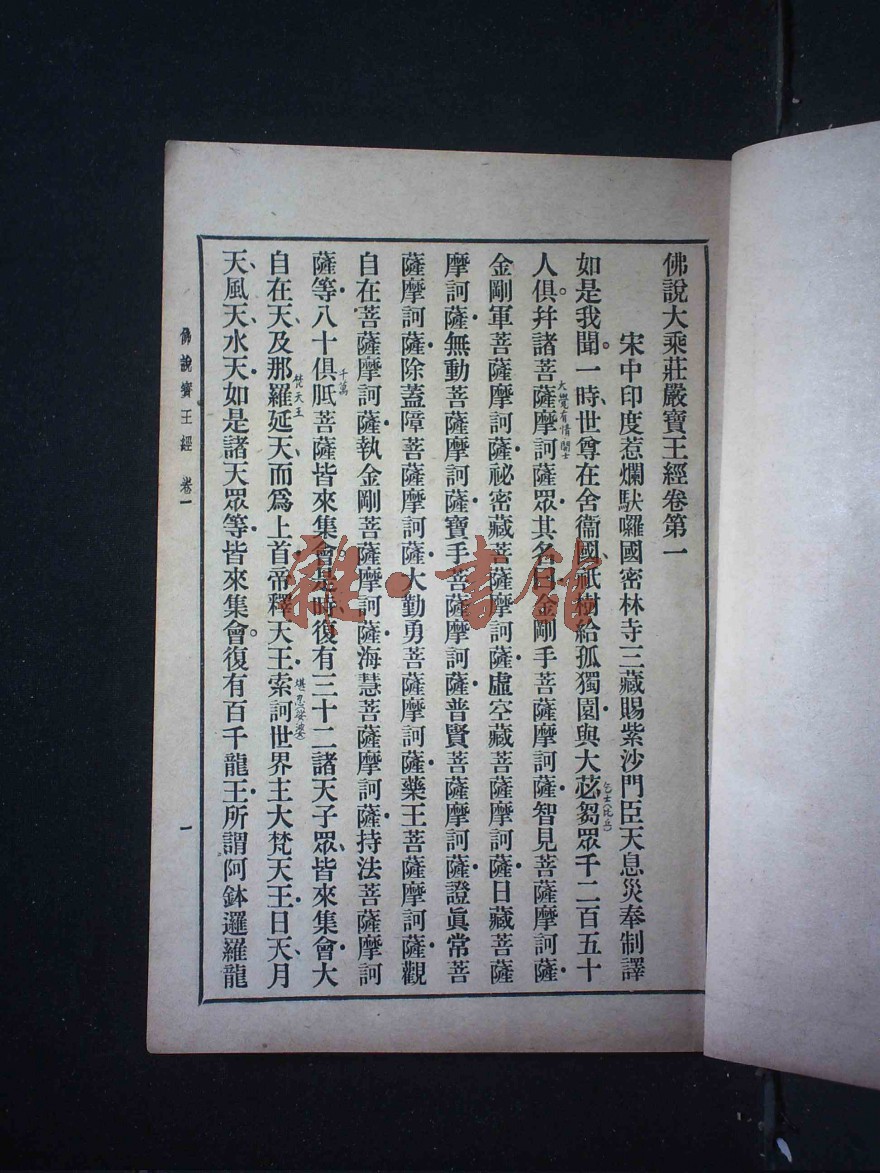 佛說大乘莊嚴寶王經卷第一
宋中印度惹爛馱囉國密林寺三藏賜紫沙門臣天息災奉制譯
如是我聞。一時、世尊在舍衞國、祇樹給孤獨園與大苾芻眾千二百五十
乞士(比丘)
人俱。幷諸菩薩摩訶薩眾其名曰金剛手菩薩摩訶薩智見菩薩摩訶薩
大覺有情 開士
金剛軍菩薩摩訶薩祕密藏菩薩摩訶薩虛空藏菩薩摩訶薩日藏菩薩
摩訶薩無動菩薩摩訶薩寶手菩薩摩訶薩普賢菩薩摩訶薩證眞常菩
薩摩訶薩除蓋障菩薩摩訶薩大勤勇菩薩摩訶薩藥王菩薩摩訶薩觀
自在菩薩摩訶薩執金剛菩薩摩訶薩海慧菩薩摩訶薩持法菩薩摩訶
薩等八十俱胝菩薩皆來集會。是時、復有三十二諸天子眾、皆來集會大
千萬
自在天、及那羅延天、而爲上首帝釋天王索訶世界主大梵天王日天、月
梵天王
堪忍(娑婆)
天、風天、水天如是諸天眾等皆來集會。復有百千龍王所謂阿鉢邏羅龍
佛說寶王經 卷一
一
雜·書館